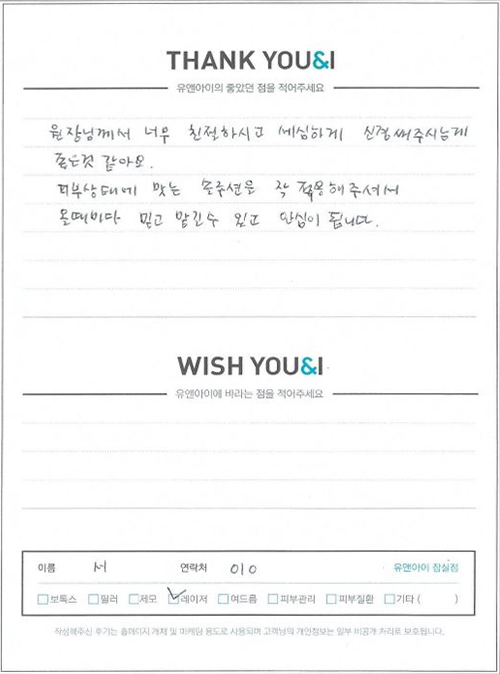 THANK YOU&I
유앤아이의 좋았던 점을 적어주세요
원장님께서 너무 친절하시고 세심하게 신경써주시는게
좋은것 같아요.
피부상태에 맞는 솔루션을 잘 적용해주셔서
올때마다 믿고 맡길수 있고 안심이 됩니다.
WISH YOU&I
유앤아이에 바라는 점을 적어주세요
이름 서 연락처 010 유앤아이 잠실점
보톡스 필러 제모 레이저 여드름 피부관리 피부질환 기타 ( )
작성해주신 후기는 홈페이지 게재 및 마케팅 용도로 사용되며 고객님의 개인정보는 일부 비공개 처리로 보호됩니다.